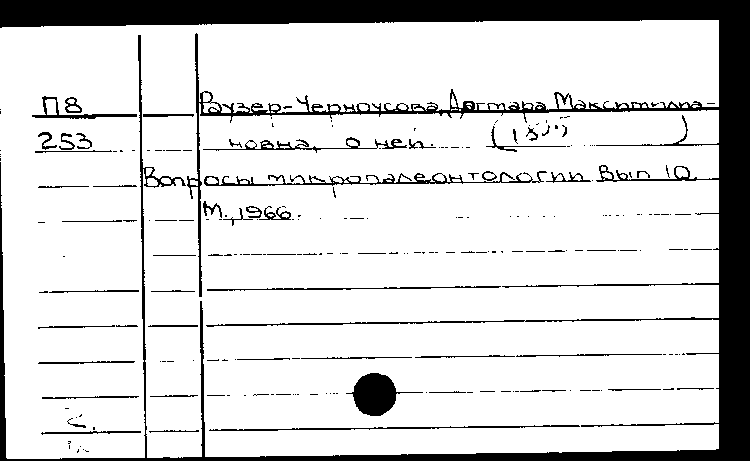 П8 Раузер-Черноусова, Дагмара Максимилиа-
253 новна, о ней. (1895 )
Вопросы микропалеонтологии Вып 10
М., 1966.